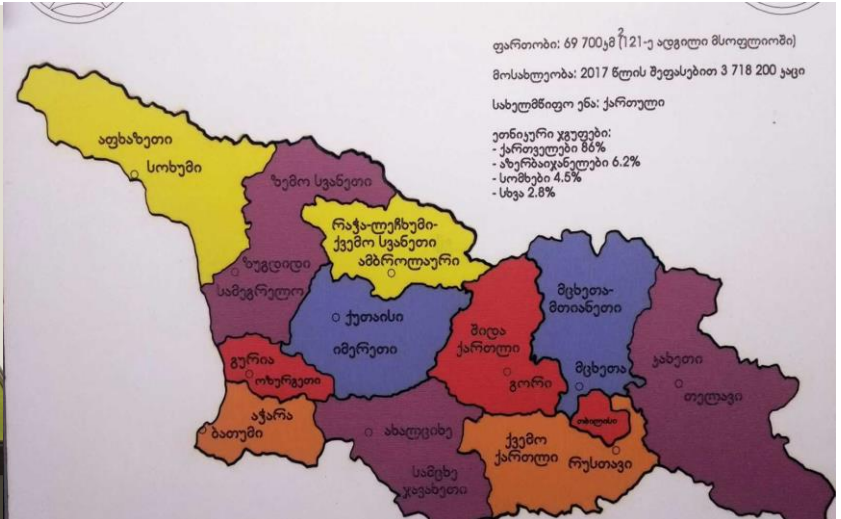 ფართობი: 69 700კმ² (121-ე ადგილი მსოფლიოში)
მოსახლეობა: 2017 წლის შეფასებით 3 718 200 კაცი
სახელმწიფო ენა: ქართული
ეთნიკური ჯგუფები:
- ქართველები 86%
- აზერბაიჯანელები 6.2%
- სომხები 4.5%
- სხვა 2.8%
აფხაზეთი
სოხუმი
ზემო სვანეთი
რაჭა-ლეჩხუმი-
ქვემო სვანეთი
ამბროლაური
ზუგდიდი
სამეგრელო
ქუთაისი
იმერეთი
შიდა
ქართლი
გორი
მცხეთა-
მთიანეთი
მცხეთა
კახეთი
თელავი
გურია
ოზურგეთი
აჭარა
ბათუმი
ახალციხე
სამცხე
ჯავახეთი
ქვემო
ქართლი
რუსთავი
თბილისი